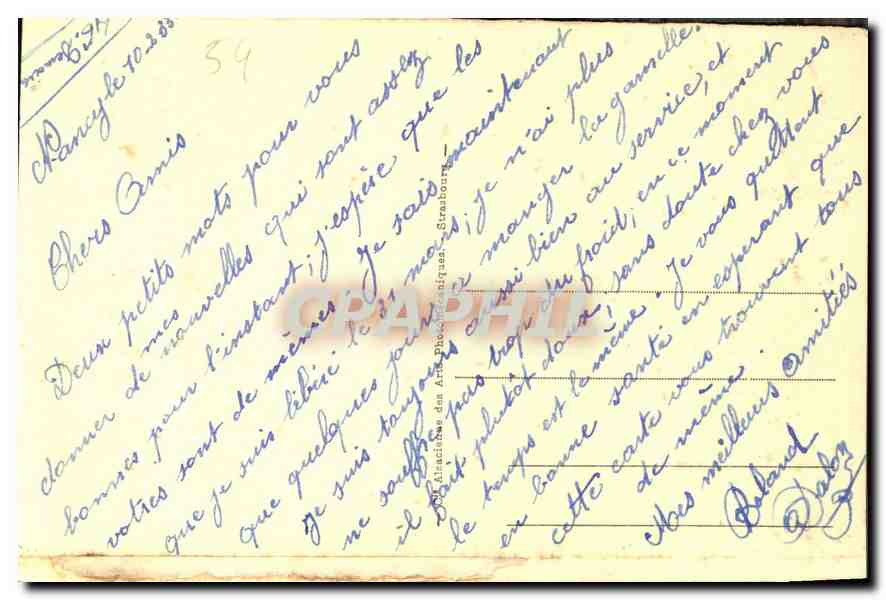 Nancy le 10-2-33
54
Chers Amis
Deux petits mots pour vous
donner de mes nouvelles qui sont assez
bonnes pour l'instant; j'espère que les
votres sont de mêmes. Je sais maintenant
que je suis libéré le 31 mars; je n'ai plus
que quelques jours à manger la gamelle.
Je suis toujours aussi bien au service, et
ne souffre pas trop du froid; en ce moment
il fait plutôt doux; sans doute chez vous
le temps est le même - Je vous quittant
en bonne santé en esperant que
cette carte vous trouvent tous
de même.
Mes meilleurs amitiés
Roland
Cie Alsacienne des Arts Photomécaniques. - Strasbourg
CPAPHIL